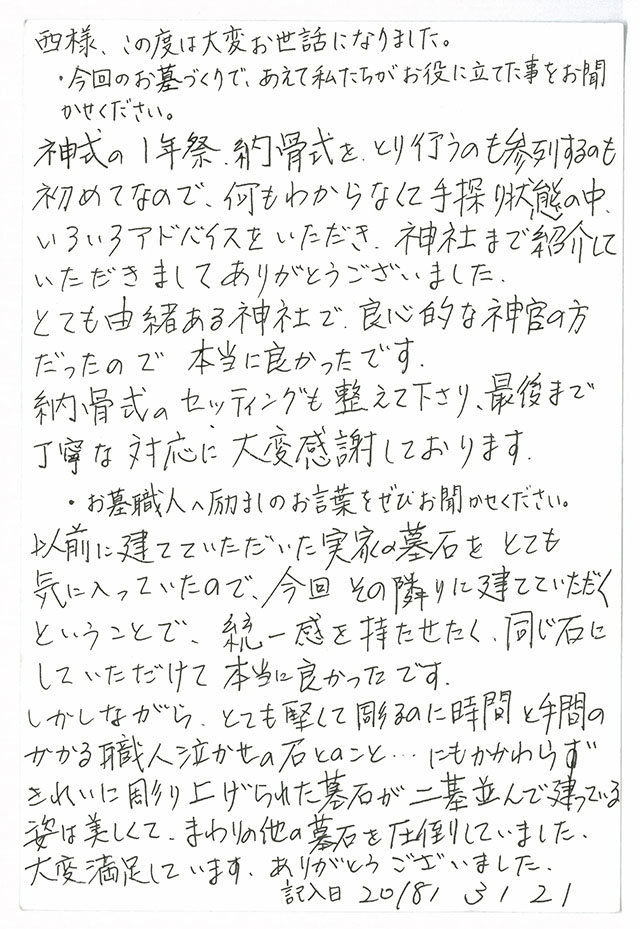 西様、この度は大変お世話になりました。
・今回のお墓づくりで、あえて私たちがお役に立てた事をお聞
かせください。
神式の1年祭、納骨式を、とり行うのも参列するのも
初めてなので、何もわからなくて手探り状態の中、
いろいろアドバイスをいただき、神社まで紹介して
いただきましてありがとうございました。
とても由緒ある神社で、良心的な神官の方
だったので 本当に良かったです。
納骨式のセッティングも整えて下さり、最後まで
丁寧な対応に大変感謝しております。
・お墓職人へ励ましのお言葉をぜひお聞かせください。
以前に建てていただいた実家の墓石をとても
気に入っていたので、今回その隣りに建てていただく
ということで、統一感を持たせたく、同じ石に
していただけて本当に良かったです。
しかしながら、とても堅くて彫るのに時間と手間の
かかる職人泣かせの石とのこと…にもかかわらず
きれいに彫り上げられた墓石が二基並んで建っている
姿は美しくて、まわりの他の墓石を圧倒していました。
大変満足しています。ありがとうございました。
記入日 2018/ 3/ 21